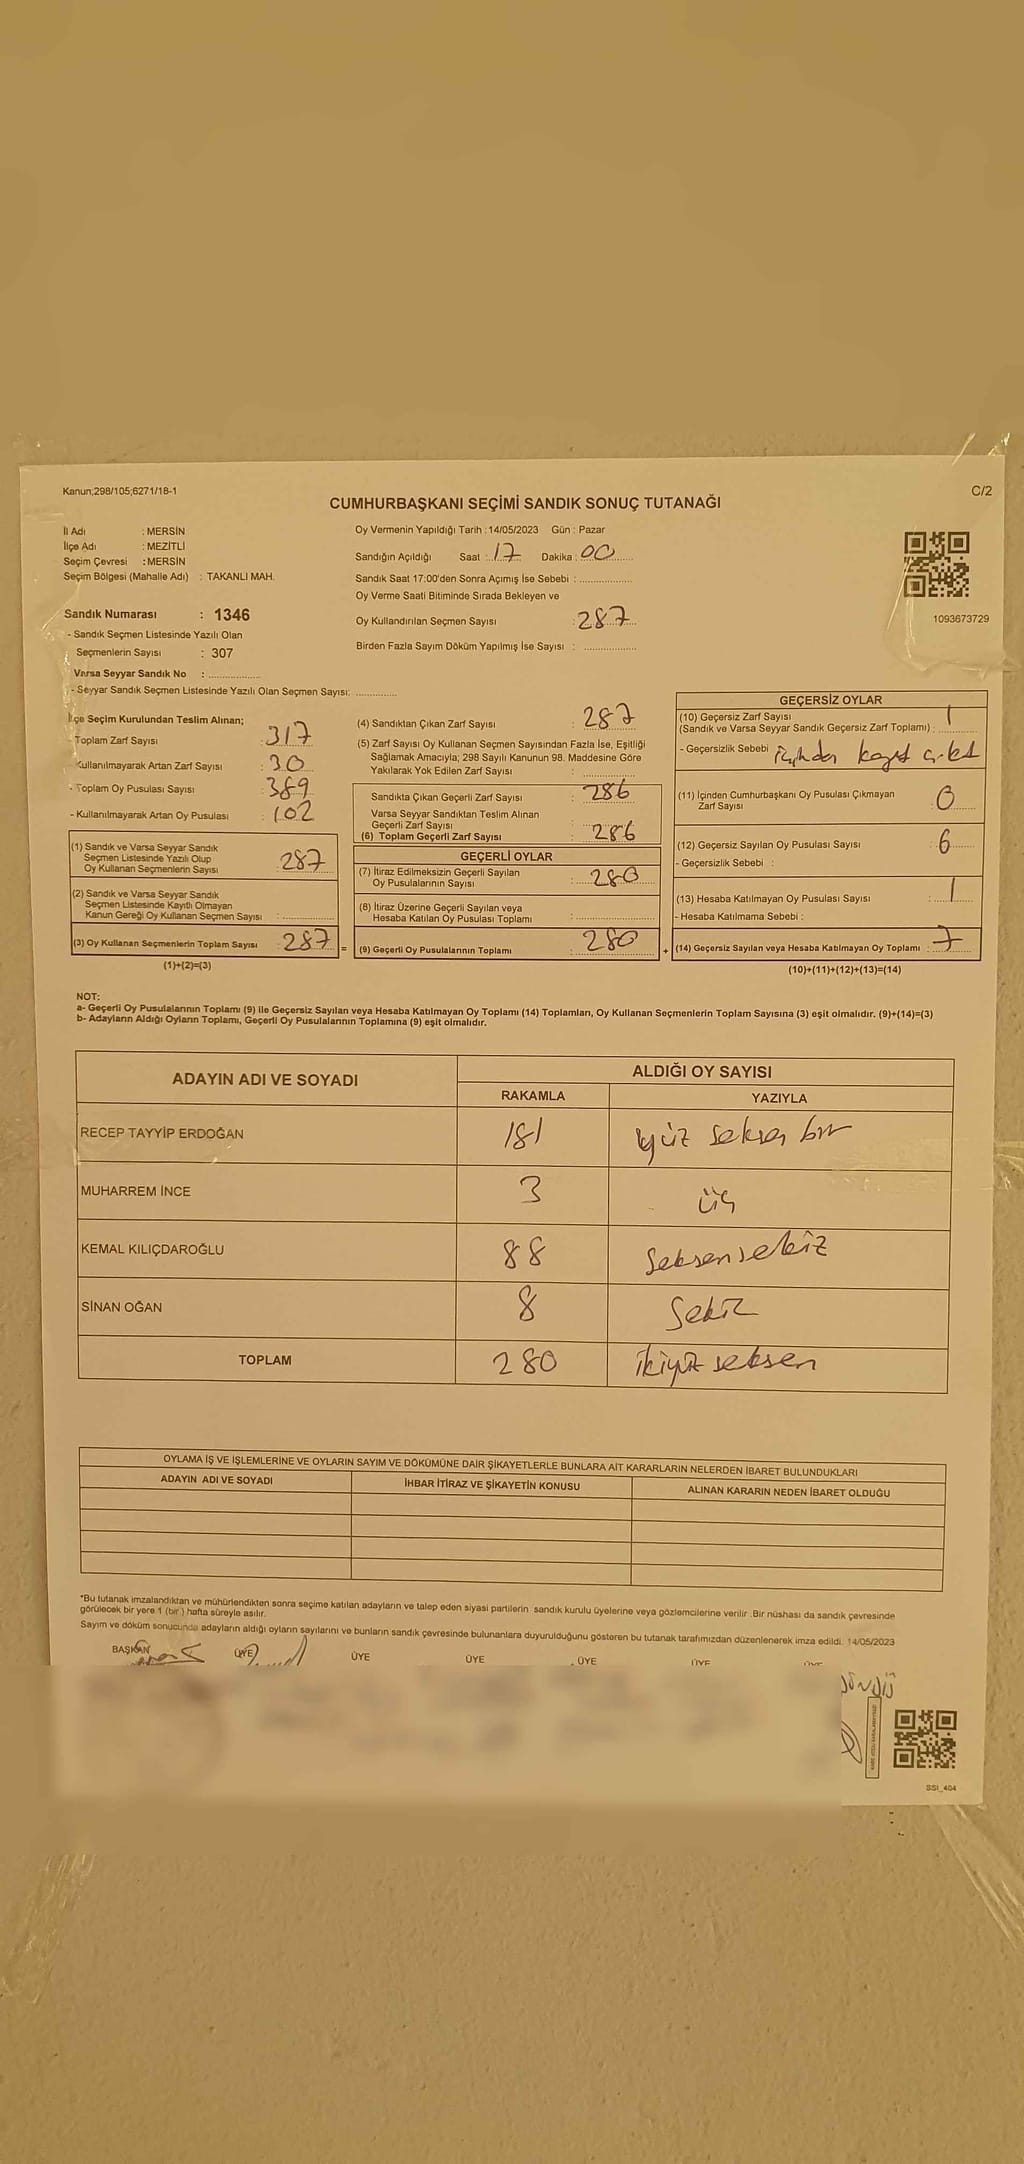 Kanun;298/105;6271/18-1
C/2
CUMHURBAŞKANI SEÇİMİ SANDIK SONUÇ TUTANAĞI
İl Adı : MERSİN
İlçe Adı : MEZİTLİ
Seçim Çevresi : MERSİN
Seçim Bölgesi (Mahalle Adı) : TAKANLI MAH.
Sandık Numarası : 1346
- Sandık Seçmen Listesinde Yazılı Olan
Seçmenlerin Sayısı : 307
Varsa Seyyar Sandık No : ..................
- Seyyar Sandık Seçmen Listesinde Yazılı Olan Seçmen Sayısı: ..............
Oy Vermenin Yapıldığı Tarih : 14/05/2023 Gün : Pazar
Sandığın Açıldığı Saat : 17 Dakika : 00
Sandık Saat 17:00'den Sonra Açımış İse Sebebi : ..................
Oy Verme Saati Bitiminde Sırada Bekleyen ve
Oy Kullandırılan Seçmen Sayısı : 287
Birden Fazla Sayım Döküm Yapılmış İse Sayısı : ..................
1093673729
İlçe Seçim Kurulundan Teslim Alınan;
- Toplam Zarf Sayısı : 317
- Kullanılmayarak Artan Zarf Sayısı : 30
- Toplam Oy Pusulası Sayısı : 389
- Kullanılmayarak Artan Oy Pusulası : 102
(1) Sandık ve Varsa Seyyar Sandık
Seçmen Listesinde Yazılı Olup
Oy Kullanan Seçmenlerin Sayısı : 287
(2) Sandık ve Varsa Seyyar Sandık
Seçmen Listesinde Kayıtlı Olmayan
Kanun Gereği Oy Kullanan Seçmen Sayısı : ..................
(3) Oy Kullanan Seçmenlerin Toplam Sayısı : 287 =
(1)+(2)=(3)
(4) Sandıktan Çıkan Zarf Sayısı : 287
(5) Zarf Sayısı Oy Kullanan Seçmen Sayısından Fazla İse, Eşitliği
Sağlamak Amacıyla; 298 Sayılı Kanunun 98. Maddesine Göre
Yakılarak Yok Edilen Zarf Sayısı : ..................
Sandıkta Çıkan Geçerli Zarf Sayısı : 286
Varsa Seyyar Sandıktan Teslim Alınan
Geçerli Zarf Sayısı : ..................
(6) Toplam Geçerli Zarf Sayısı : 286
GEÇERLİ OYLAR
(7) İtiraz Edilmeksizin Geçerli Sayılan
Oy Pusulalarının Sayısı : 280
(8) İtiraz Üzerine Geçerli Sayılan veya
Hesaba Katılan Oy Pusulası Toplamı : ..................
(9) Geçerli Oy Pusulalarının Toplamı : 280 +
GEÇERSİZ OYLAR
(10) Geçersiz Zarf Sayısı
(Sandık ve Varsa Seyyar Sandık Geçersiz Zarf Toplamı) : 1
- Geçersizlik Sebebi
(11) İçinden Cumhurbaşkanı Oy Pusulası Çıkmayan
Zarf Sayısı : 0
(12) Geçersiz Sayılan Oy Pusulası Sayısı : 6
- Geçersizlik Sebebi :
(13) Hesaba Katılmayan Oy Pusulası Sayısı : 1
- Hesaba Katılmama Sebebi :
(14) Geçersiz Sayılan veya Hesaba Katılmayan Oy Toplamı : 7
(10)+(11)+(12)+(13)=(14)
NOT:
a- Geçerli Oy Pusulalarının Toplamı (9) ile Geçersiz Sayılan veya Hesaba Katılmayan Oy Toplamı (14) Toplamları, Oy Kullanan Seçmenlerin Toplam Sayısına (3) eşit olmalıdır. (9)+(14)=(3)
b- Adayların Aldığı Oyların Toplamı, Geçerli Oy Pusulalarının Toplamına (9) eşit olmalıdır.
ADAYIN ADI VE SOYADI ALDIĞI OY SAYISI
RAKAMLA YAZIYLA
RECEP TAYYİP ERDOĞAN 181 yüz seksen bir
MUHARREM İNCE 3 üç
KEMAL KILIÇDAROĞLU 88 seksensekiz
SİNAN OĞAN 8 Sekiz
TOPLAM 280 ikiyüz seksen
OYLAMA İŞ VE İŞLEMLERİNE VE OYLARIN SAYIM VE DÖKÜMÜNE DAİR ŞİKAYETLERLE BUNLARA AİT KARARLARIN NELERDEN İBARET BULUNDUKLARI
ADAYIN ADI VE SOYADI İHBAR İTİRAZ VE ŞİKAYETİN KONUSU ALINAN KARARIN NEDEN İBARET OLDUĞU
*Bu tutanak imzalandıktan ve mühürlendikten sonra seçime katılan adayların ve talep eden siyasi partilerin sandık kurulu üyelerine veya gözlemcilerine verilir .Bir nüshası da sandık çevresinde
görülecek bir yere 1 (bir ) hafta süreyle asılır.
Sayım ve döküm sonucunda adayların aldığı oyların sayılarını ve bunların sandık çevresinde bulunanlara duyurulduğunu gösteren bu tutanak tarafımızdan düzenlenerek imza edildi. 14/05/2023
BAŞKAN ÜYE ÜYE ÜYE ÜYE ÜYE ÜYE
SSI_404